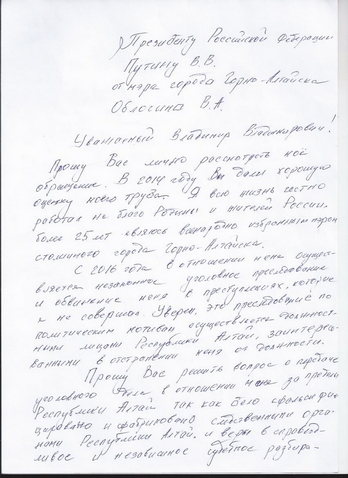 Президенту Российской Федерации
Путину В.В.
от мэра города Горно-Алтайска
Облогина В.А.
Уважаемый Владимир Владимирович!
Прошу Вас лично рассмотреть моё
обращение. В 2014 году Вы дали хорошую
оценку моего труда. Я всю жизнь честно
работал на благо Родины и жителей России.
более 25 лет являюсь всенародно избранным мэром
столичного города Горно-Алтайска.
С 2016 года в отношении меня осущес-
вляется незаконное уголовное преследование
и обвинение меня в преступлениях, которые
я не совершал. Уверен, это преследование по
политическим мотивам осуществляется должност-
ными лицами Республики Алтай, заинтересо-
ванными в отстранении меня от должности.
Прошу Вас решить вопрос о передаче
уголовного дела в отношении меня за пределы
Республики Алтай так как дело сфальсифи-
цировано и сфабриковано следственными орга-
нами Республики Алтай, и верю в справед-
ливое и независимое судебное разбира-